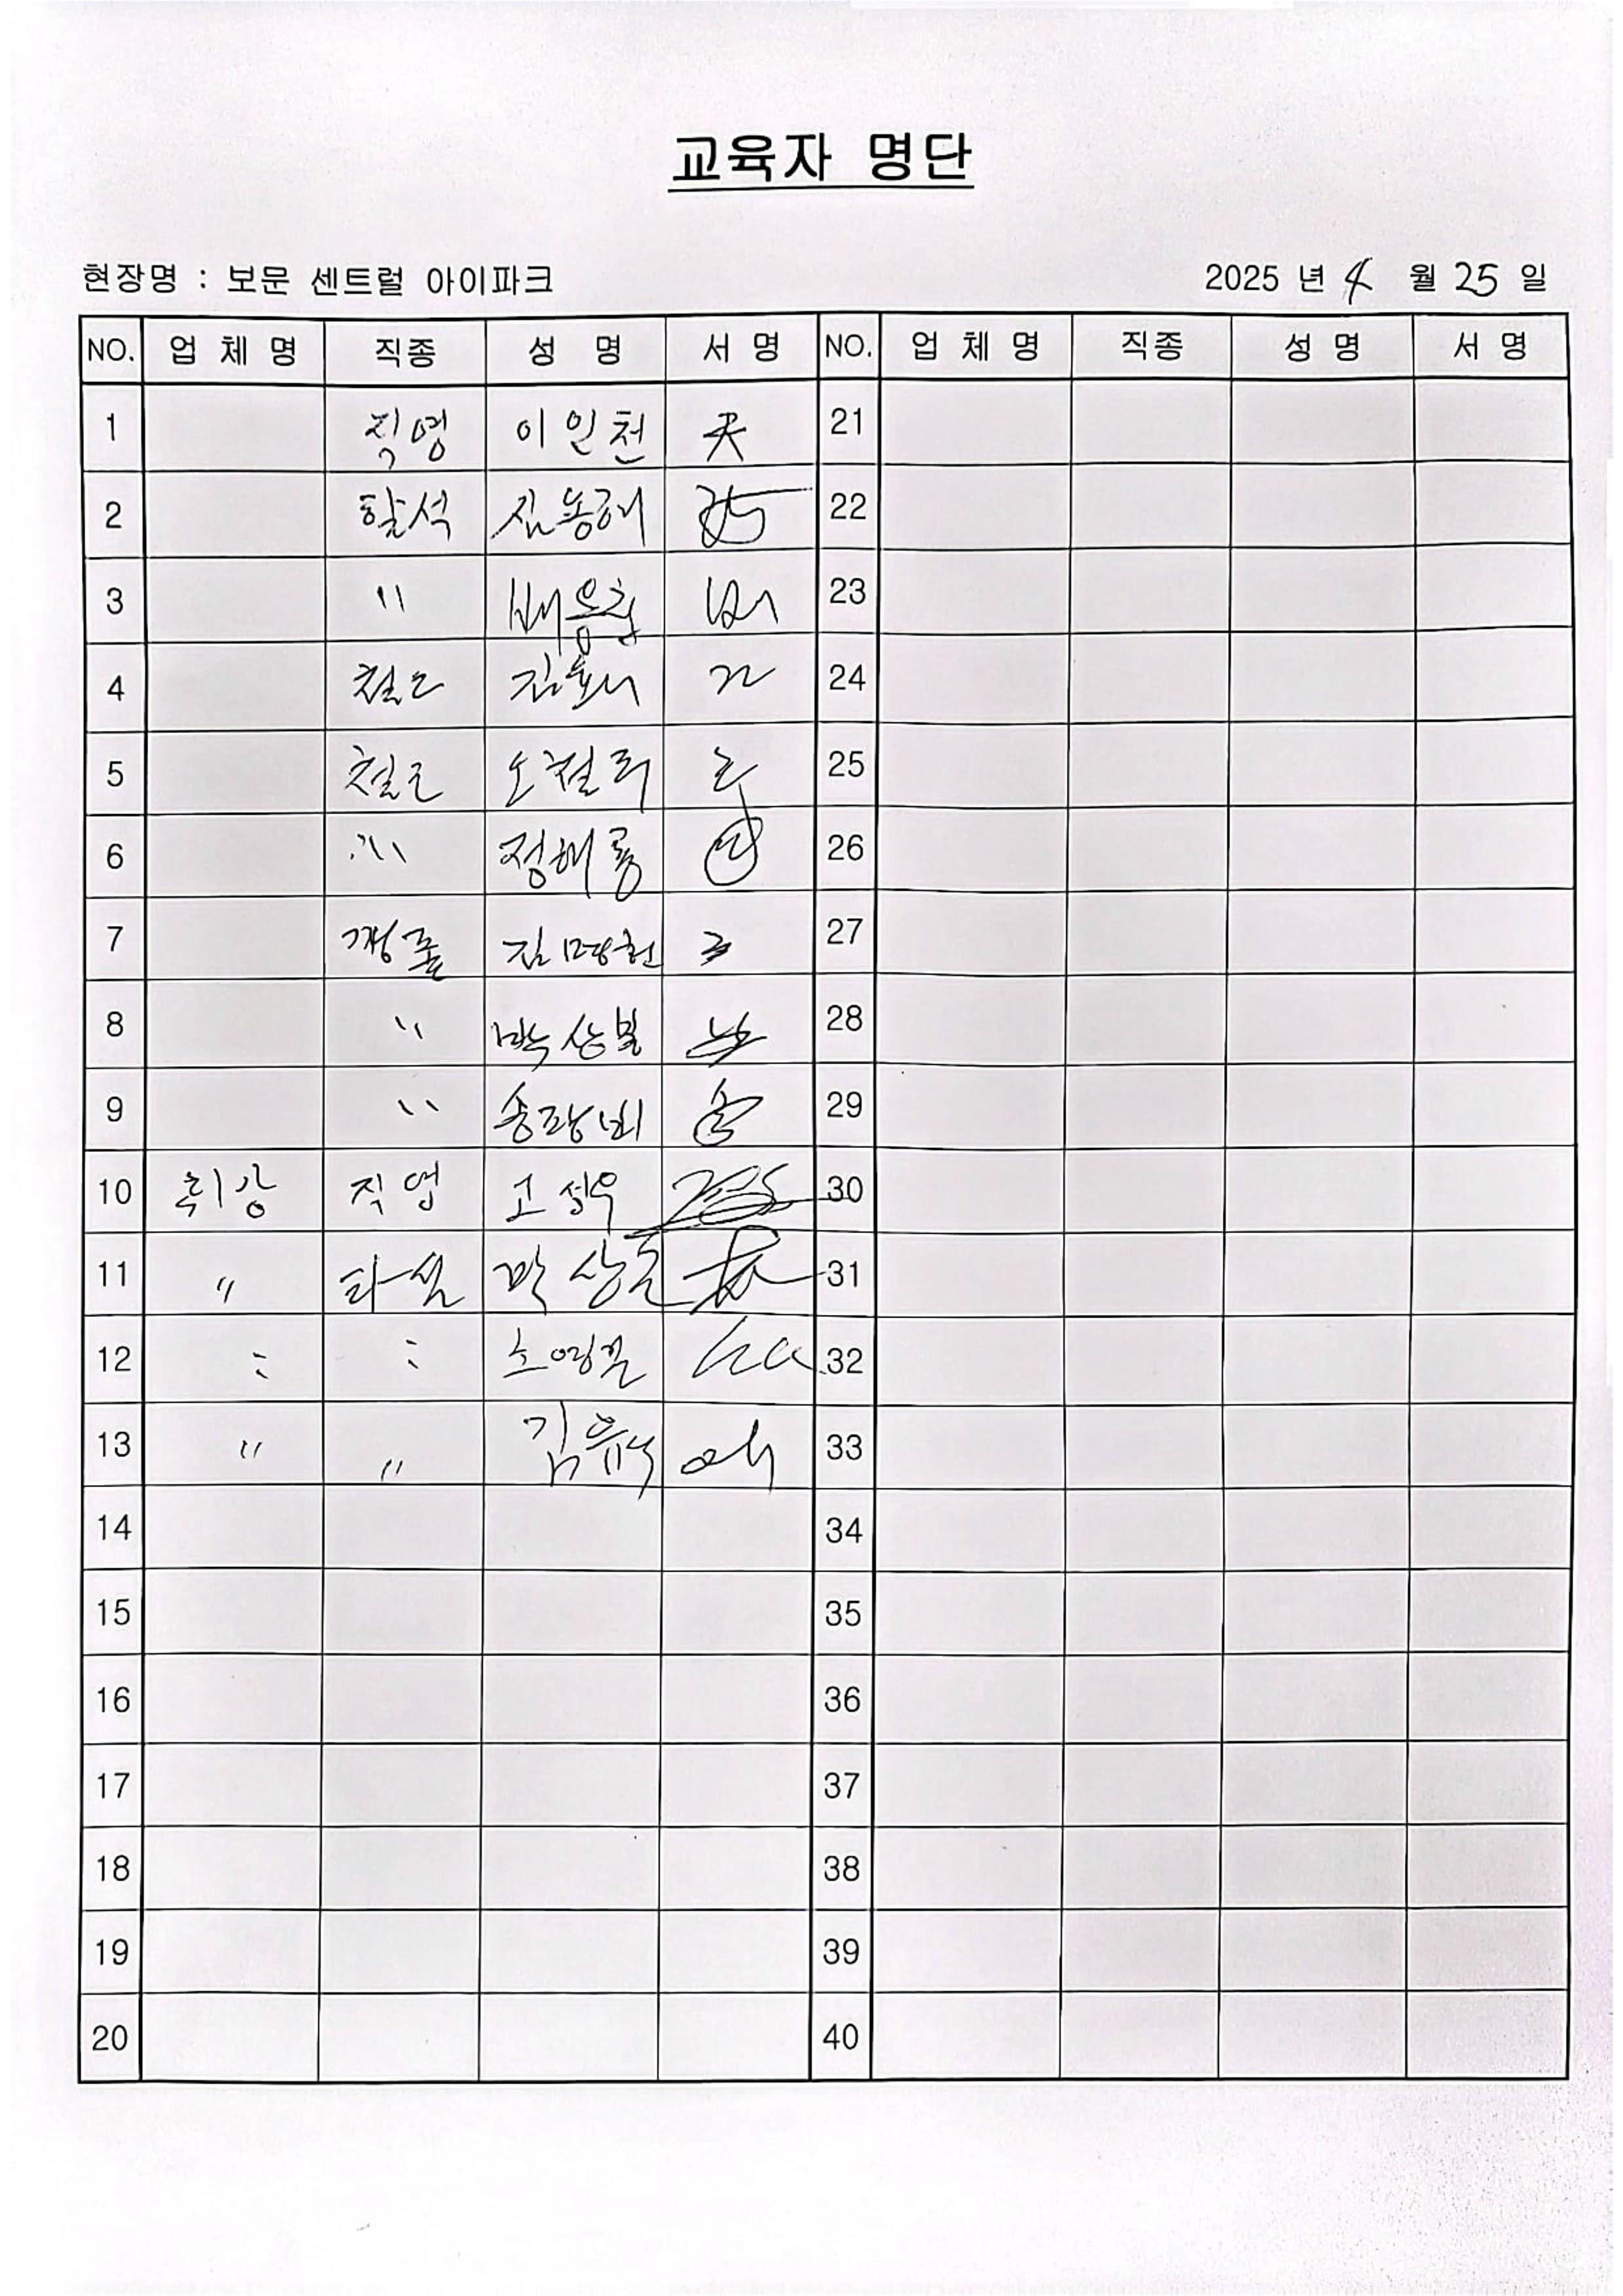 교육자 명단
현장명 : 보문 센트럴 아이파크
2025 년 4 월 25 일
NO. 업 체 명 직종 성 명 서 명 NO. 업 체 명 직종 성 명 서 명
1 직영 이인천 21
2 할석 김동해 22
3 〃 배 23
4 철근 김 24
5 철근 오철 25
6 〃 정해룡 26
7 김명천 27
8 〃 박상봉 28
9 〃 송광비 29
10 휘강 직영 고성우 30
11 〃 타설 박상 31
12 〃 〃 조영길 32
13 〃 〃 김 33
14 34
15 35
16 36
17 37
18 38
19 39
20 40